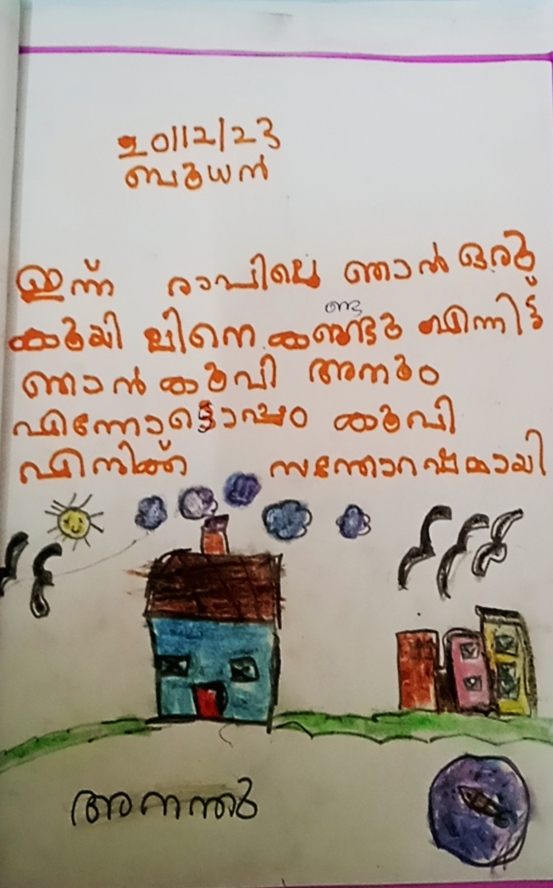 20/12/23
ബുധൻ
ഇന്ന് രാവിലെ ഞാൻ ഒരു
കുയിലിനെ കണ്ടു എന്നിട്ട്
ണ്ടു
ഞാൻ കൂവി അതും
എന്നോടൊപ്പം കൂവി
എനിക്ക് സന്തോഷമായി
അനന്തു